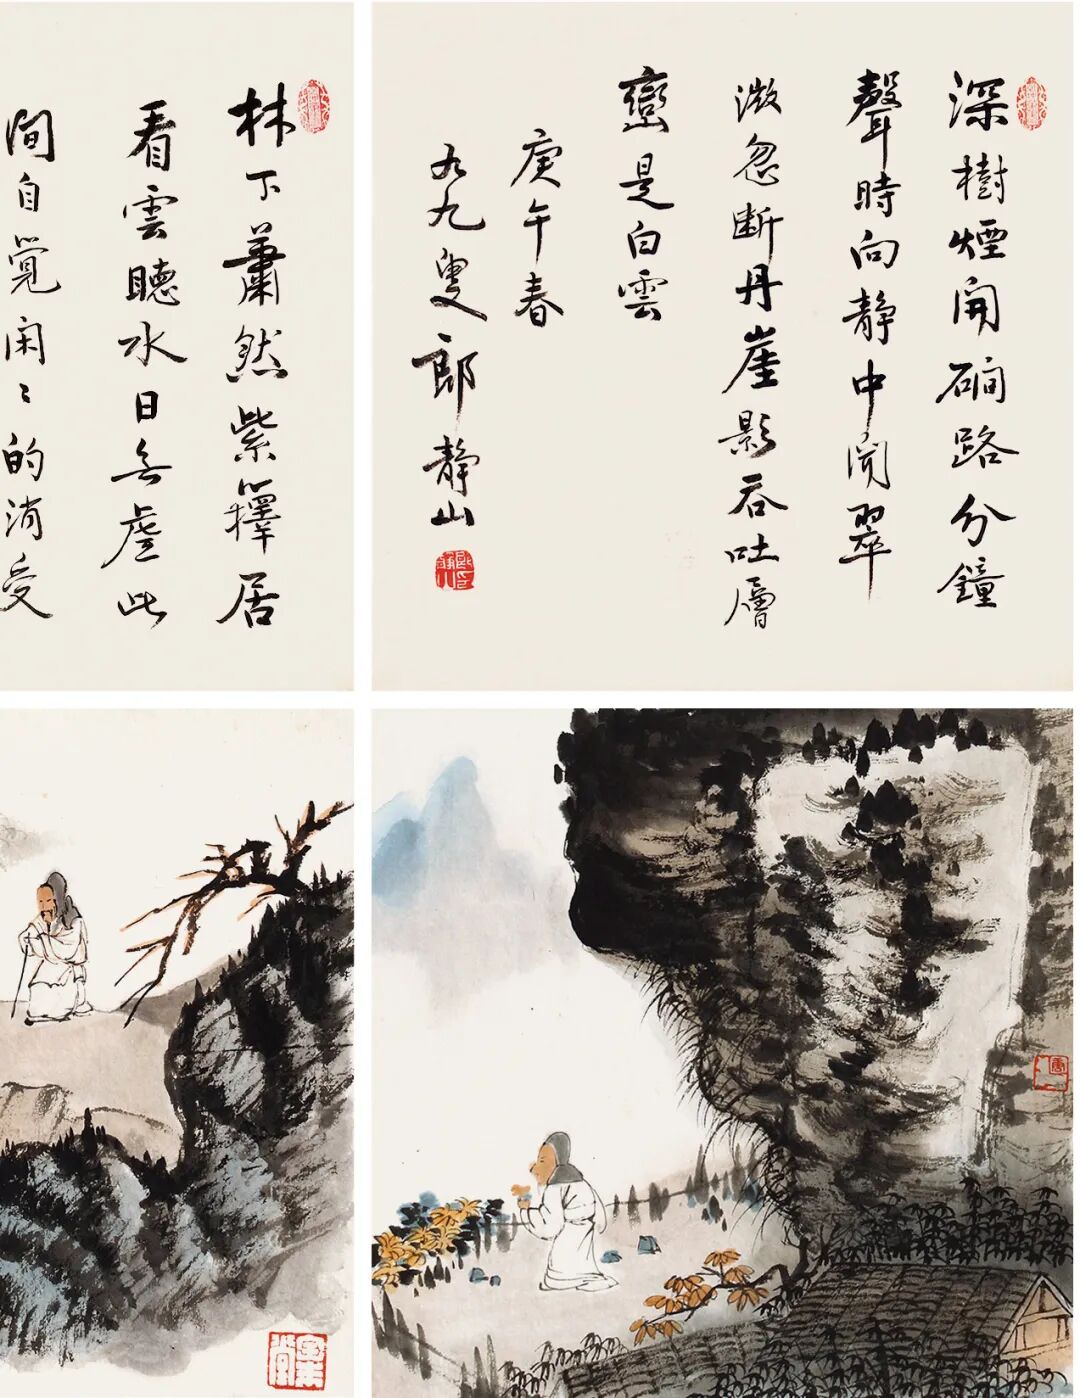 深樹煙開磵路分鐘
聲時向静中聞翠
微忽断丹崖影吞吐層
巒是白雲
庚午春
九九叟郎静山
林下蕭然紫籜居
看雲聽水日無虚此
間自覺闲々的消受